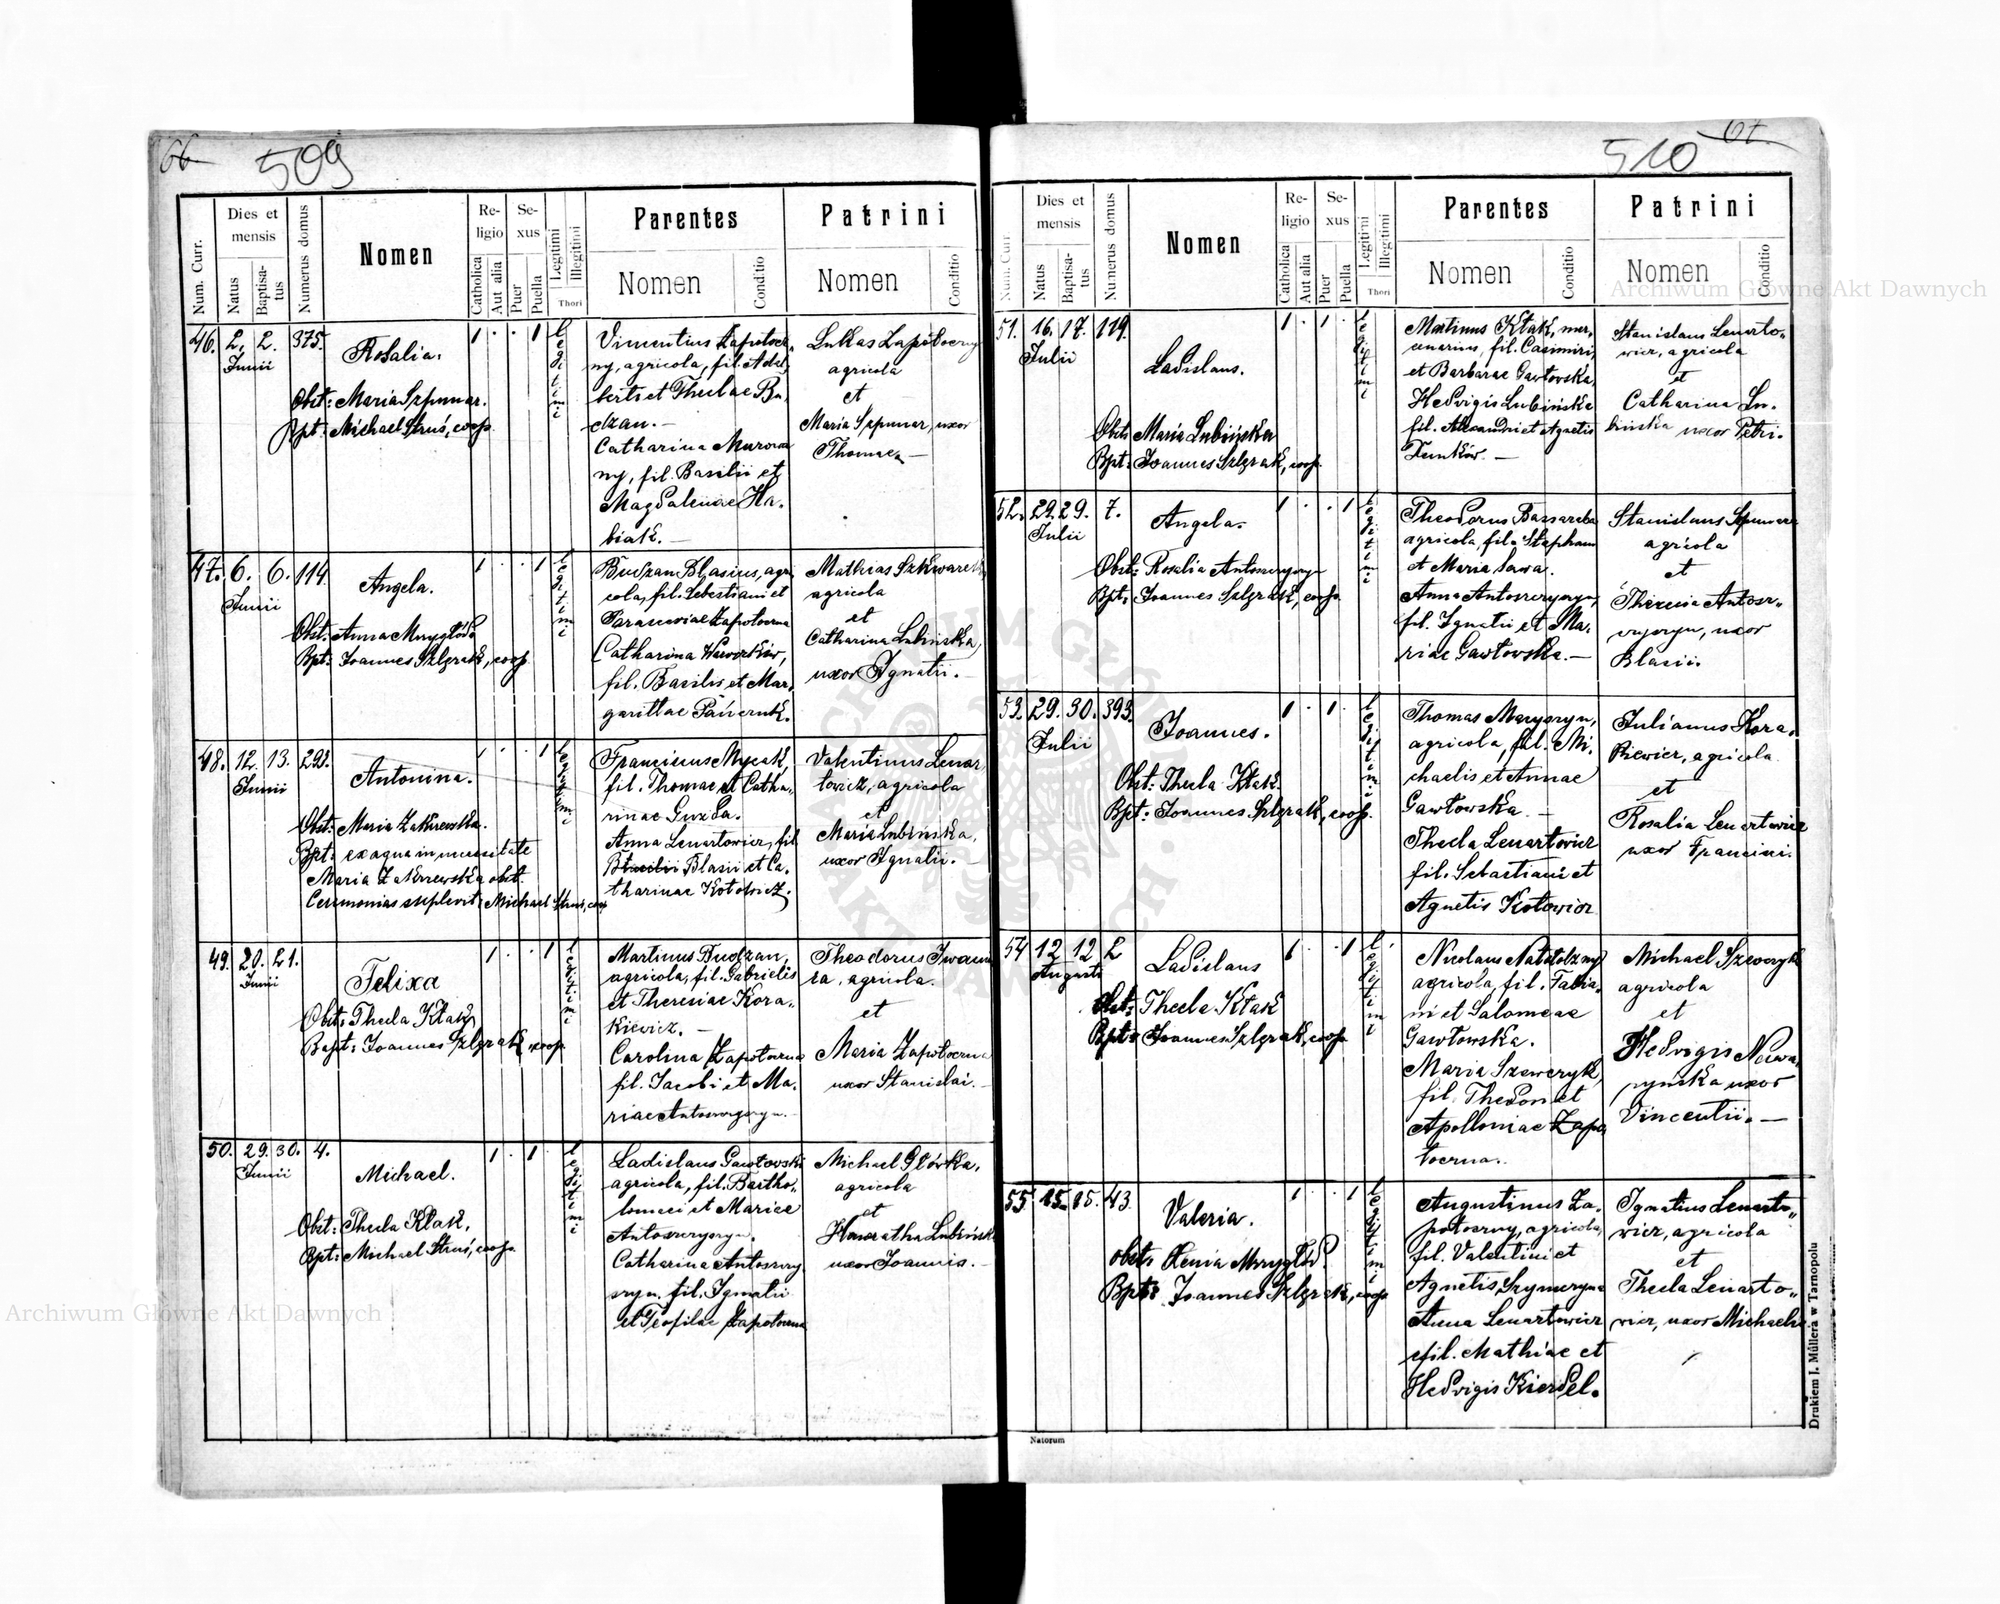 66
509
Num. Curr.
Dies et mensis
Natus
Baptisatus
Numerus domus
Nomen
Religio
Catholica
Aut alia
Sexus
Puer
Puella
Legitimi
Illegitimi
Thori
Parentes
Nomen
Conditio
Patrini
Nomen
Conditio
46. 2. 2. 375.
Junii
Rosalia.
1 . . 1
legitimi
Obst: Maria Szpunar.
Bpt: Michael Struś, coop.
Vincentius Zapotocz
ny, agricola, fil. Adal
berti et Theclae Bu
dzan. —
Catharina Murowa
ny, fil. Basilii et
Magdalenae Ha.
biak. —
Lukas Zapotoczny
agricola
et
Maria Szpunar, uxor
Thomae. —
47. 6. 6. 114.
Junii
Angela.
1 . . 1
legitimi
Obst: Anna Mrygłód
Bpt: Joannes Szlęzak, coop.
Budzan Blasius, agri
cola, fil. Sebastiani et
Parasceviae Zapotoczna
Catharina
fil. Basilii et Mar.
garittae
Mathias
agricola
et
Catharina Lubińska,
uxor Ignatii. —
48. 12. 13. 293.
Junii
Antonina.
1 . . 1
legitimi
Obst: Maria Zakrzewska.
Bpt: ex aqua in necessitate
Maria Zakrzewska obst.
Ceremonias suplevit: Michael Struś, coop.
Franciscus Mycak,
fil. Thomae et Catha.
rinae Guzda.
Anna Lenartowicz, fil
Blasii et Ca.
tharinae Kotowicz.
Valentinus Lenar
towicz, agricola
et
Maria Lubińska,
uxor Ignatii. —
49. 20. 21.
Junii
Felixa
1 . . 1
legitimi
Obst: Thecla Kłak
Bapt: Joannes Szlęzak, coop.
Martinus Budzan,
agricola, fil. Gabrielis
et Theresiae Kora.
kiewicz. —
Carolina Zapotoczna
fil. Jacobi et Ma.
riae Antoszczyszyn. —
Theodorus
agricola.
et
Maria Zapotoczna
uxor Stanislai. —
50. 29. 30. 4.
Junii
Michael.
1 . 1 .
legitimi
Obst: Thecla Kłak.
Bpt: Michael Struś, coop.
Ladislaus Gawłowski
agricola, fil. Bartho..
lomei et Mariae
Antoszczyszyn.
Catharina Antoszczy
szyn, fil. Ignatii
et Teofilae Zapotoczna
Michael Główka,
agricola
et
Honoratha Lubińska
uxor Joannis. —
67
510
Num. Curr
Dies et mensis
Natus
Baptisatus
Numerus domus
Nomen
Religio
Catholica
Aut alia
Sexus
Puer
Puella
Legitimi
Illegitimi
Thori
Parentes
Nomen
Conditio
Patrini
Nomen
Conditio
51. 16. 17. 119.
Julii
Ladislaus.
1 . 1 .
legitimi
Obst: Maria Lubińska
Bpt: Joannes Szlęzak, coop.
Martinus Kłak, mer,
cenarius, fil. Casimiri,
et Barbarae Gawłowska,
Hedvigis Lubińska
fil. Alexandri et Agnetis
—
Stanislaus Lenarto-
wicz, agricola
et
Catharina Lu.
bińska uxor Petri.
52. 29. 29. 7.
Julii
Angela.
1 . . 1
legitimi
Obst: Rosalia Antoszczyszyn
Bpt: Joannes Szlęzak, coop.
Theodorus Bassaraba
agricola, fil. Stephani
et Maria Sawa.
Anna Antoszczyszyn,
fil. Ignatii et Ma.
riae Gawłowska. —
Stanislaus Szpunar
agricola
et
Theresia Antosz-
czyszyn, uxor
Blasii.
53. 29. 30. 393.
Julii
Joannes.
1 . 1 .
legitimi
Obst: Thecla Kłak.
Bpt: Joannes Szlęzak, coop.
Thomas Maryszyn,
agricola, fil. Mi.
chaelis et Annae
Gawłowska. —
Thecla Lenartowicz
fil. Sebastiani et
Agnetis Kotowicz
Julianus Kora.
kiewicz, agricola
et
Rosalia Lenartowicz
uxor Francisci.
54 12 12 2
Augusti
Ladislaus
1 . . 1
legitimi
Obst: Thecla Kłak
Bpt: Joannes Szlęzak, coop.
Nicolaus
agricola, fil. Fabia.
ni et Salomeae
Gawłowska.
Maria Szewczyk,
fil. Theodori et
Apolloniae Zapo
toczna..
Michael Szewczyk
agricola
et
Hedvigis
uxor
Vincentii. —
55. 15. 15. 43.
Valeria.
1 . . 1
legitimi
Obst: Xenia Mrygłód
Bpt: Joannes Szlęzak, coop.
Augustinus Za.
potoczny, agricola,
fil. Valentini et
Agnetis
Anna Lenartowicz
fil. Mathiae et
Hedvigis Kierdel.
Ignatius Lenarto..
wicz, agricola
et
Thecla Lenarto..
wicz, uxor Michaelis
Natorum
Drukiem J. Müllera w Tarnopolu
Archiwum Główne Akt Dawnych
Archiwum Główne Akt Dawnych